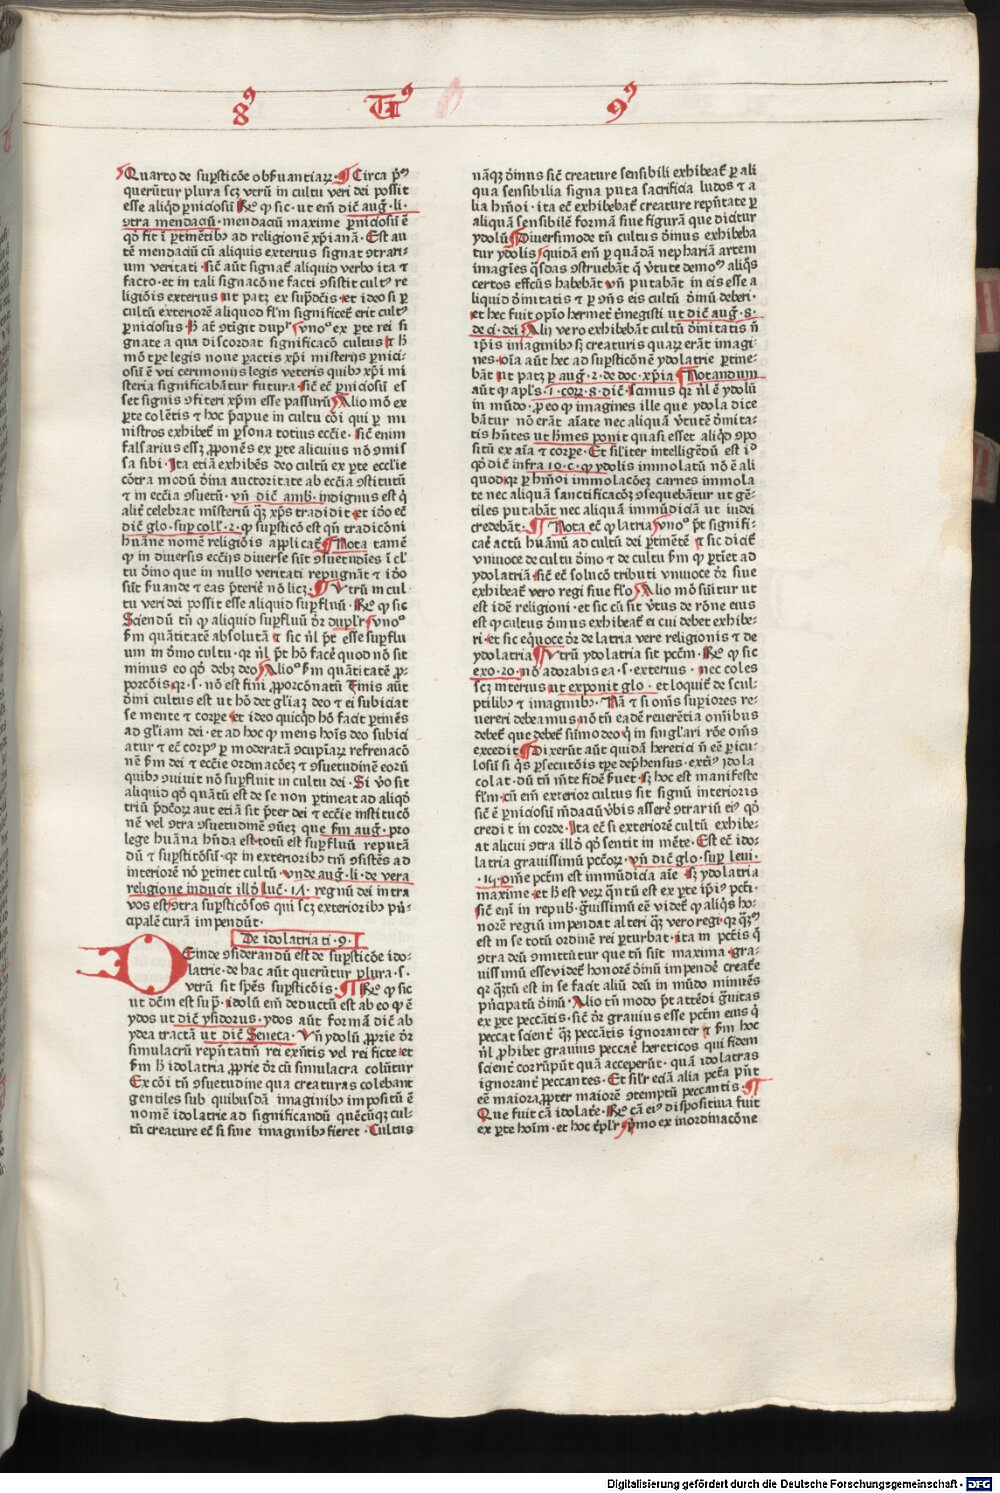 8⁹ Ti⁹ 9⁹
Quarto de suꝑsticōe obẜuantiaꝝ. ¶ Circa p̄ᵐ
querūtur plura scꝫ vtrū in cultu veri dei possit
esse aliqḋ ꝑniciosū Rͦ ꝙ sic. ut em̄ dic̄ aug̅. li.
ꝯtra mendaciū. mendaciū maxime ꝑniciosū ē
qḋ fit ī ꝑtinētibꝰ ad religionē xp̄ianā. Est au
tē mendaciū cū aliquis exterius signat ꝯtrari⸗
um veritati. sic̄ aūt signat̄ aliquid verbo ita ⁊
facto. et in tali significōne facti ꝯsistit cultꝰ re
ligiōis exterius ut patꝫ ex sup̄dc̄is. et ideo si ꝑ
cultū exteriorē aliquod fl̄m significet̄ erit cultꝰ
ꝑniciosus. h̄ aūt ꝯtīgit duplr̄ vnoͦ ex ꝑte rei si
gnate a qua discordat significacō cultus et h̄
mō tꝑe legis noue ꝑactis xp̄i misterijs ꝑnici⸗
osū ē vti cerimonijs legis veteris quibꝰ xp̄i mi
steria significabātur futura. sic̄ ec̄ ꝑniciosū es
set signis ꝯfiteri xp̄m esse passurū Alio mō ex
ꝑte colētis et hoc p̄apue in cultu cōi qui ꝑ mi
nistros exhibet̄ in ꝑsona totius ecc̄ie. sic̄ enim
falsarius esset ꝓponēs ex ꝑte alicuius nō ꝯmis
sa sibi. Ita etiā exhibēs deo cultū ex ꝑte eccl̄ie
cōtra modū d̄ina auctoritate ab ecc̄ia ꝯstitutū
⁊ in ecc̄ia ꝯsuetū. vn̄ dic̄ amb̄. indignus est q̄
alit̄ celebrat misteriū qꝫ xp̄s tradidit. et iō ec̄
dic̄ glo. suꝑ coll̄. 2. ꝙ suꝑsticō est qn̄ tradicōni
hūane nomē religiōis applicat̄ ¶ Nota tamē
ꝙ in diuersis ecc̄ijs diuerse sūt ꝯsuetudīes ī cl̄
tu d̄ino que in nullo veritati repugnāt ⁊ iō
sūt ẜuande ⁊ eas p̄terire nō licꝫ. ¶ Vtrū in cul⸗
tu veri dei possit esse aliquid suꝑfluū. Rͦ ꝙ sic
Sciendū tn̄ ꝙ aliquid suꝑfluū dr̄ duplr̄ vnoͦ
ẜm quātitatē absolutā ⁊ sic nl̄ p̄t esse suꝑflu
um in d̄ino cultu. qꝛ nl̄ p̄t hō facē quod nō sit
minus eo qḋ debꝫ deo Alioͦ ẜm quātitatē ꝓ⸗
porcōis. qꝛ. s. nō est fini ꝓporcōnatū Finis aūt
d̄ini cultus est ut hō det gl̄iaꝫ deo ⁊ ei subiciat
se mente ⁊ corꝑe et ideo quicqḋ hō facit ꝑtinēs
ad gl̄iam dei. et ad hoc ꝙ mens hoīs deo subici
atur ⁊ ec̄ corpꝰ ꝑ moderatā ꝯcupīaꝝ refrenacō
nē ẜm dei ⁊ ecc̄ie ordinacōeꝫ ⁊ ꝯsuetudinē eoꝝ
quibꝰ ꝯuiuit nō suꝑfluit in cultu dei. Si v̓o sit
aliquid qḋ quātū est de se non ꝑtineat ad aliqḋ
triū p̄dcōꝝ aut etiā sit p̄ter dei ⁊ ecc̄ie institucō
nē vel ꝯtra ꝯsuetudinē ꝯūeꝫ que ẜm aug̅. pro
lege hūana hn̄da est. totū est suꝑfluū reputā
dū ⁊ suꝑstitōsū. qꝛ in exterioribꝰ tm̄ ꝯsistēs ad
interiorē nō ꝑtinet cultū. vnde aug̅. li. de vera
religione inducit illḋ luc̄. 17. regnū dei intra
vos est. ꝯtra suꝑsticōsos qui scꝫ exterioribꝰ p̓n⸗
cipalē curā impendūt.
De idolatria ti. 9.
Deinde ꝯsiderandū est de suꝑsticōe ido⸗
latrie. de hac aūt querūtur plura. s.
vtrū sit sp̄es suꝑsticōis. ¶ Rͦ ꝙ sic
ut dc̄m est sup̄. idolū em̄ deductū est ab eo ꝙ ē
ydos ut dic̄ ysidorus. ydos aūt formā dic̄ ab
ydea tractā ut dic̄ Seneca. Vn̄ ydolū ꝓprie dr̄
simulacrū repn̄tatiū rei exn̄tis vel rei ficte. et
ẜm h̄ idolatria ꝓprie dr̄ cū simulacra colūtur
Ex cōi tn̄ ꝯsuetudine qua creaturas colebant
gentiles sub quibusdā imaginibꝰ impositū ē
nomē idolatrie ad significandū quēcūqꝫ cul⸗
tū creature ec̄ si sine imaginibꝰ fieret. Cultus
nāqꝫ d̄inus sic̄ creature sensibili exhibeat̄ ꝑ ali
qua sensibilia signa puta sacrificia ludos ⁊ a
lia hm̄oi. ita ec̄ exhibebat̄ creature repn̄tate ꝑ
aliquā sensibilē formā siue figurā que dicitur
ydolū ¶ Diuersimode tn̄ cultus d̄inus exhibeba
tur ydolis. quidā em̄ ꝑ quādā nephariā artem
imagīes qͣsdas ꝯstruebāt ꝙ v̓tute demoꝝ aliqͦs
certos effectus habebāt. vn̄ putabāt in eis esse a
liquid d̄initatis ⁊ ꝑ ꝯn̄s eis cultū d̄inū deberi.
et hec fuit opīo hermet̄ t̓megisti ut dic̄ aug̅. 8.
de ci. dei. Alij vero exhibebāt cultū d̄initatis n̄
ip̄is imaginibꝰ sꝫ creaturis quaꝝ erāt imagi⸗
nes. oīa aūt hec ad suꝑsticōnē ydolatrie ꝑtine⸗
bāt ut patꝫ ꝑ aug̅. 2. de doc. xp̄ia. ¶ Notandum
aūt ꝙ apl̄s. 1. corꝝ. 8. dic̄. scimus qꝛ nl̄ ē ydolū
in mūdo. ꝓ eo ꝙ imagines ille que ydola dice
bātur nō erāt aīate nec aliquā v̓tutē d̄inita⸗
tis hn̄tes ut h̓mes ponit quasi esset aliqḋ ꝯpo
sitū ex aīa ⁊ corꝑe. Et sil̄iter intelligēdū est id
qḋ dic̄ infra 10. c. ꝙ ydolis immolatū nō ē ali
quod. qꝛ ꝑ hm̄oi immolacōeꝫ carnes immola
te nec aliquā sanctificacōꝫ ꝯsequebātur ut gē⸗
tiles putabāt nec aliquā immūdiciā ut iudei
credebāt. ¶ Nota ec̄ ꝙ latria vnoͦ p̄t signifi⸗
care actū hūanū ad cultū dei ꝑtinētē ⁊ sic dicit̄
vniuoce de cultu d̄ino ⁊ de cultu ẜm ꝙ ꝑtiet ad
ydolatriā. sic̄ ec̄ solucō tributi vniuoce dr̄ siue
exhibeat̄ vero regi siue fl̄o. Alio mō sūitur ut
est idē religioni. et sic cū sit v̓tus de rōne eius
est ꝙ cultus d̄inus exhibeat̄ ei cui debet exhibe⸗
ri. et sic eq̓uoce dr̄ de latria vere religionis ⁊ de
ydolatria ¶ Vtrū ydolatria sit pctm̄. Rͦ ꝙ sic
exo. 20. nō adorabis ea. s. exterius. nec coles
scꝫ interius ut exponit glo. et loquit̄ de scul⸗
ptilibꝰ ⁊ imaginibꝰ. Nā ⁊ si om̄s suꝑiores re⸗
uereri debeamus. nō tn̄ eadē reuerētia om̄ibus
debet̄ que debet̄ sūmo deo. qͥ in singl̄ari rōe om̄s
excedit ¶ Dixerūt aūt quidā heretici n̄ eē ꝑicu⸗
losū si qͥs ꝑsecutōis tꝑe dep̄hensus. exteͥꝰ idola
colat. dū tn̄ mēte fidē ẜuet. sꝫ hoc est manifeste
fl̄m. cū em̄ exterior cultus sit signū interioris
sic̄ ē ꝑniciosū mēdaciū v̓bis asserē ꝯtrariū eiꝰ qḋ
credit in corde. Ita ec̄ si exteriorē cultū exhibe⸗
at alicui ꝯtra illḋ qḋ sentit in mēte. Est ec̄ ido⸗
latria grauissimū pctōꝝ. vn̄ dic̄ glo. suꝑ leui.
.19. om̄e pctm̄ est immūdicia aīe. sꝫ ydolatria
maxime. et h̄ est veꝝ qn̄tū est ex ꝑte ip̄ius pcti.
sic̄ em̄ in repub. g̓uissimū eē videt̄ ꝙ aliqͥs ho⸗
norē regiū impendat alteri qꝫ vero regi. qꝛ qꝫᵐ
est in se totū ordinē rei ꝑturbat. ita in pctīs q̄
ꝯtra deū ꝯmittūtur que tn̄ sūt maxima. gra⸗
uissimū esse videt̄ honorē d̄inū impendē creat̓e
qꝛ qꝫtū est in se facit aliū deū in mūdo minuēs
p̓ncipatū d̄inū. Alio tn̄ modo p̄t attēdi g̓uitas
ex ꝑte peccātis. sic̄ dr̄ grauius esse pctm̄ eius q̄
peccat scient̓ qꝫ peccātis ignoranter ⁊ ẜm hoc
nl̄ ꝓhibet grauius peccare hereticos qui fidem
scient̓ corrūpūt quā acceperūt. quā idolatras
ignorant̓ peccantes. Et silr̄ ec̄iā alia pctā pn̄t
eē maiora ꝓpter maiorē ꝯtemptū peccantis. ¶
Que fuit cā idolat̓e. Rͦ cā eiꝰ dispositiua fuit
ex ꝑte hoīm. et hoc tpl̄r p̓mo ex inordinacōne
Digitalisierung gefördert durch die Deutsche Forschungsgemeinschaft · DFG